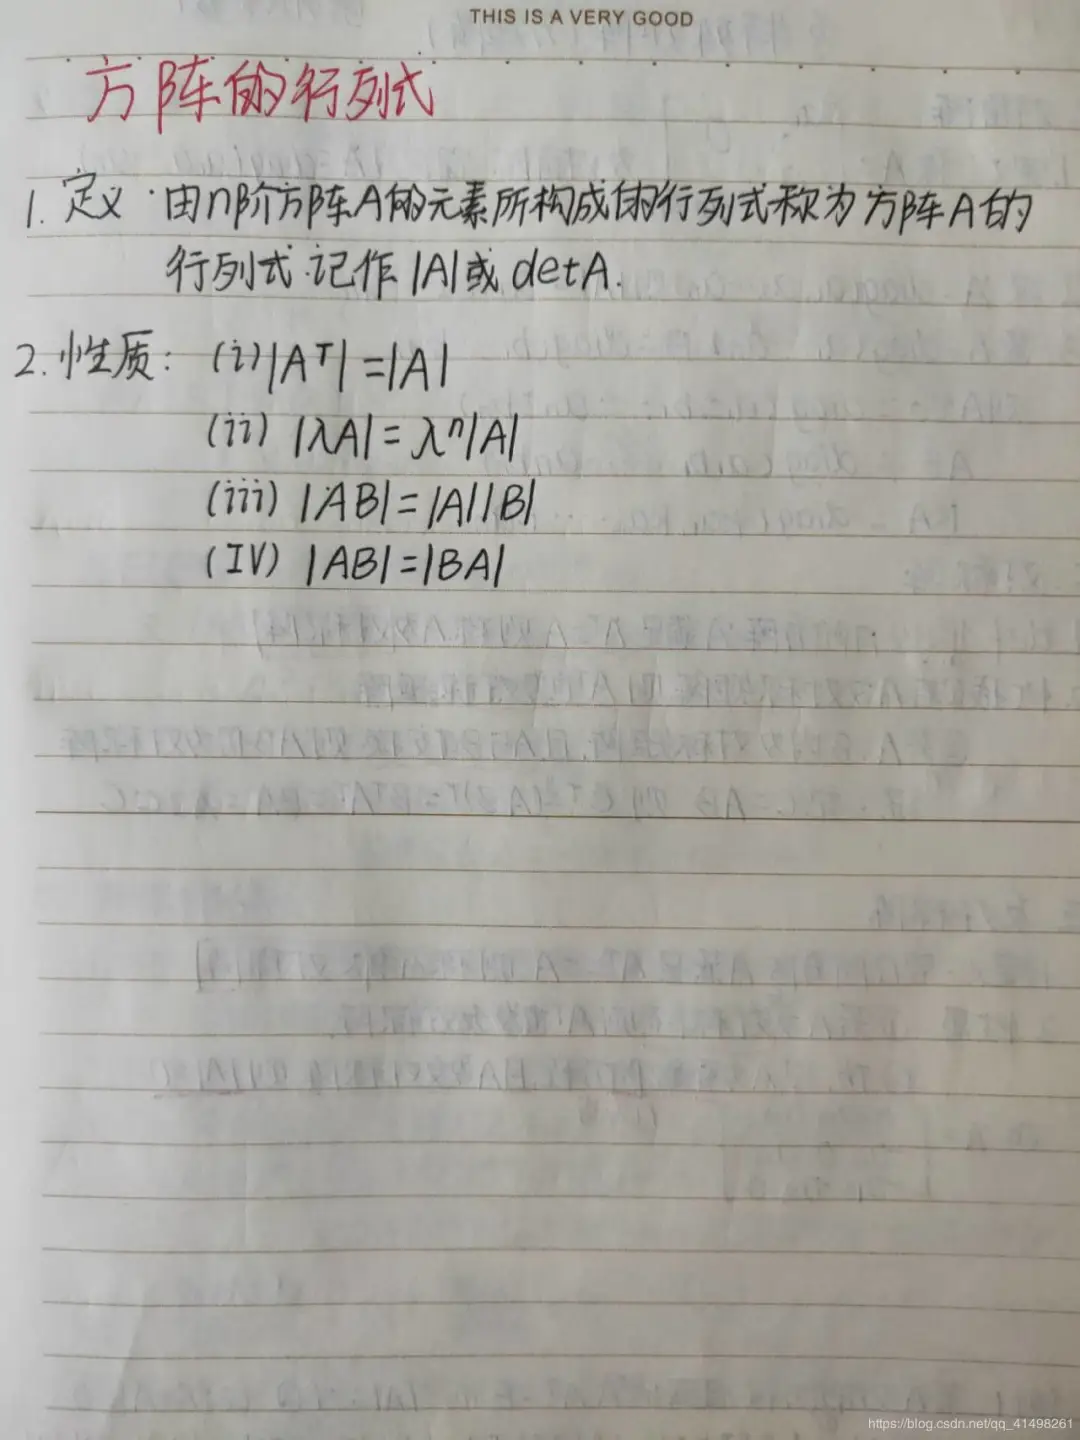 THIS IS A VERY GOOD
方阵的行列式
1. 定义·由n阶方阵A的元素所构成的行列式称为方阵A的
行列式.记作|A|或detA.
2.性质: (i)|Aᵀ|=|A|
(ii) |λA|=λⁿ|A|
(iii) |AB|=|A||B|
(IV) |AB|=|BA|
https://blog.csdn.net/qq_41498261